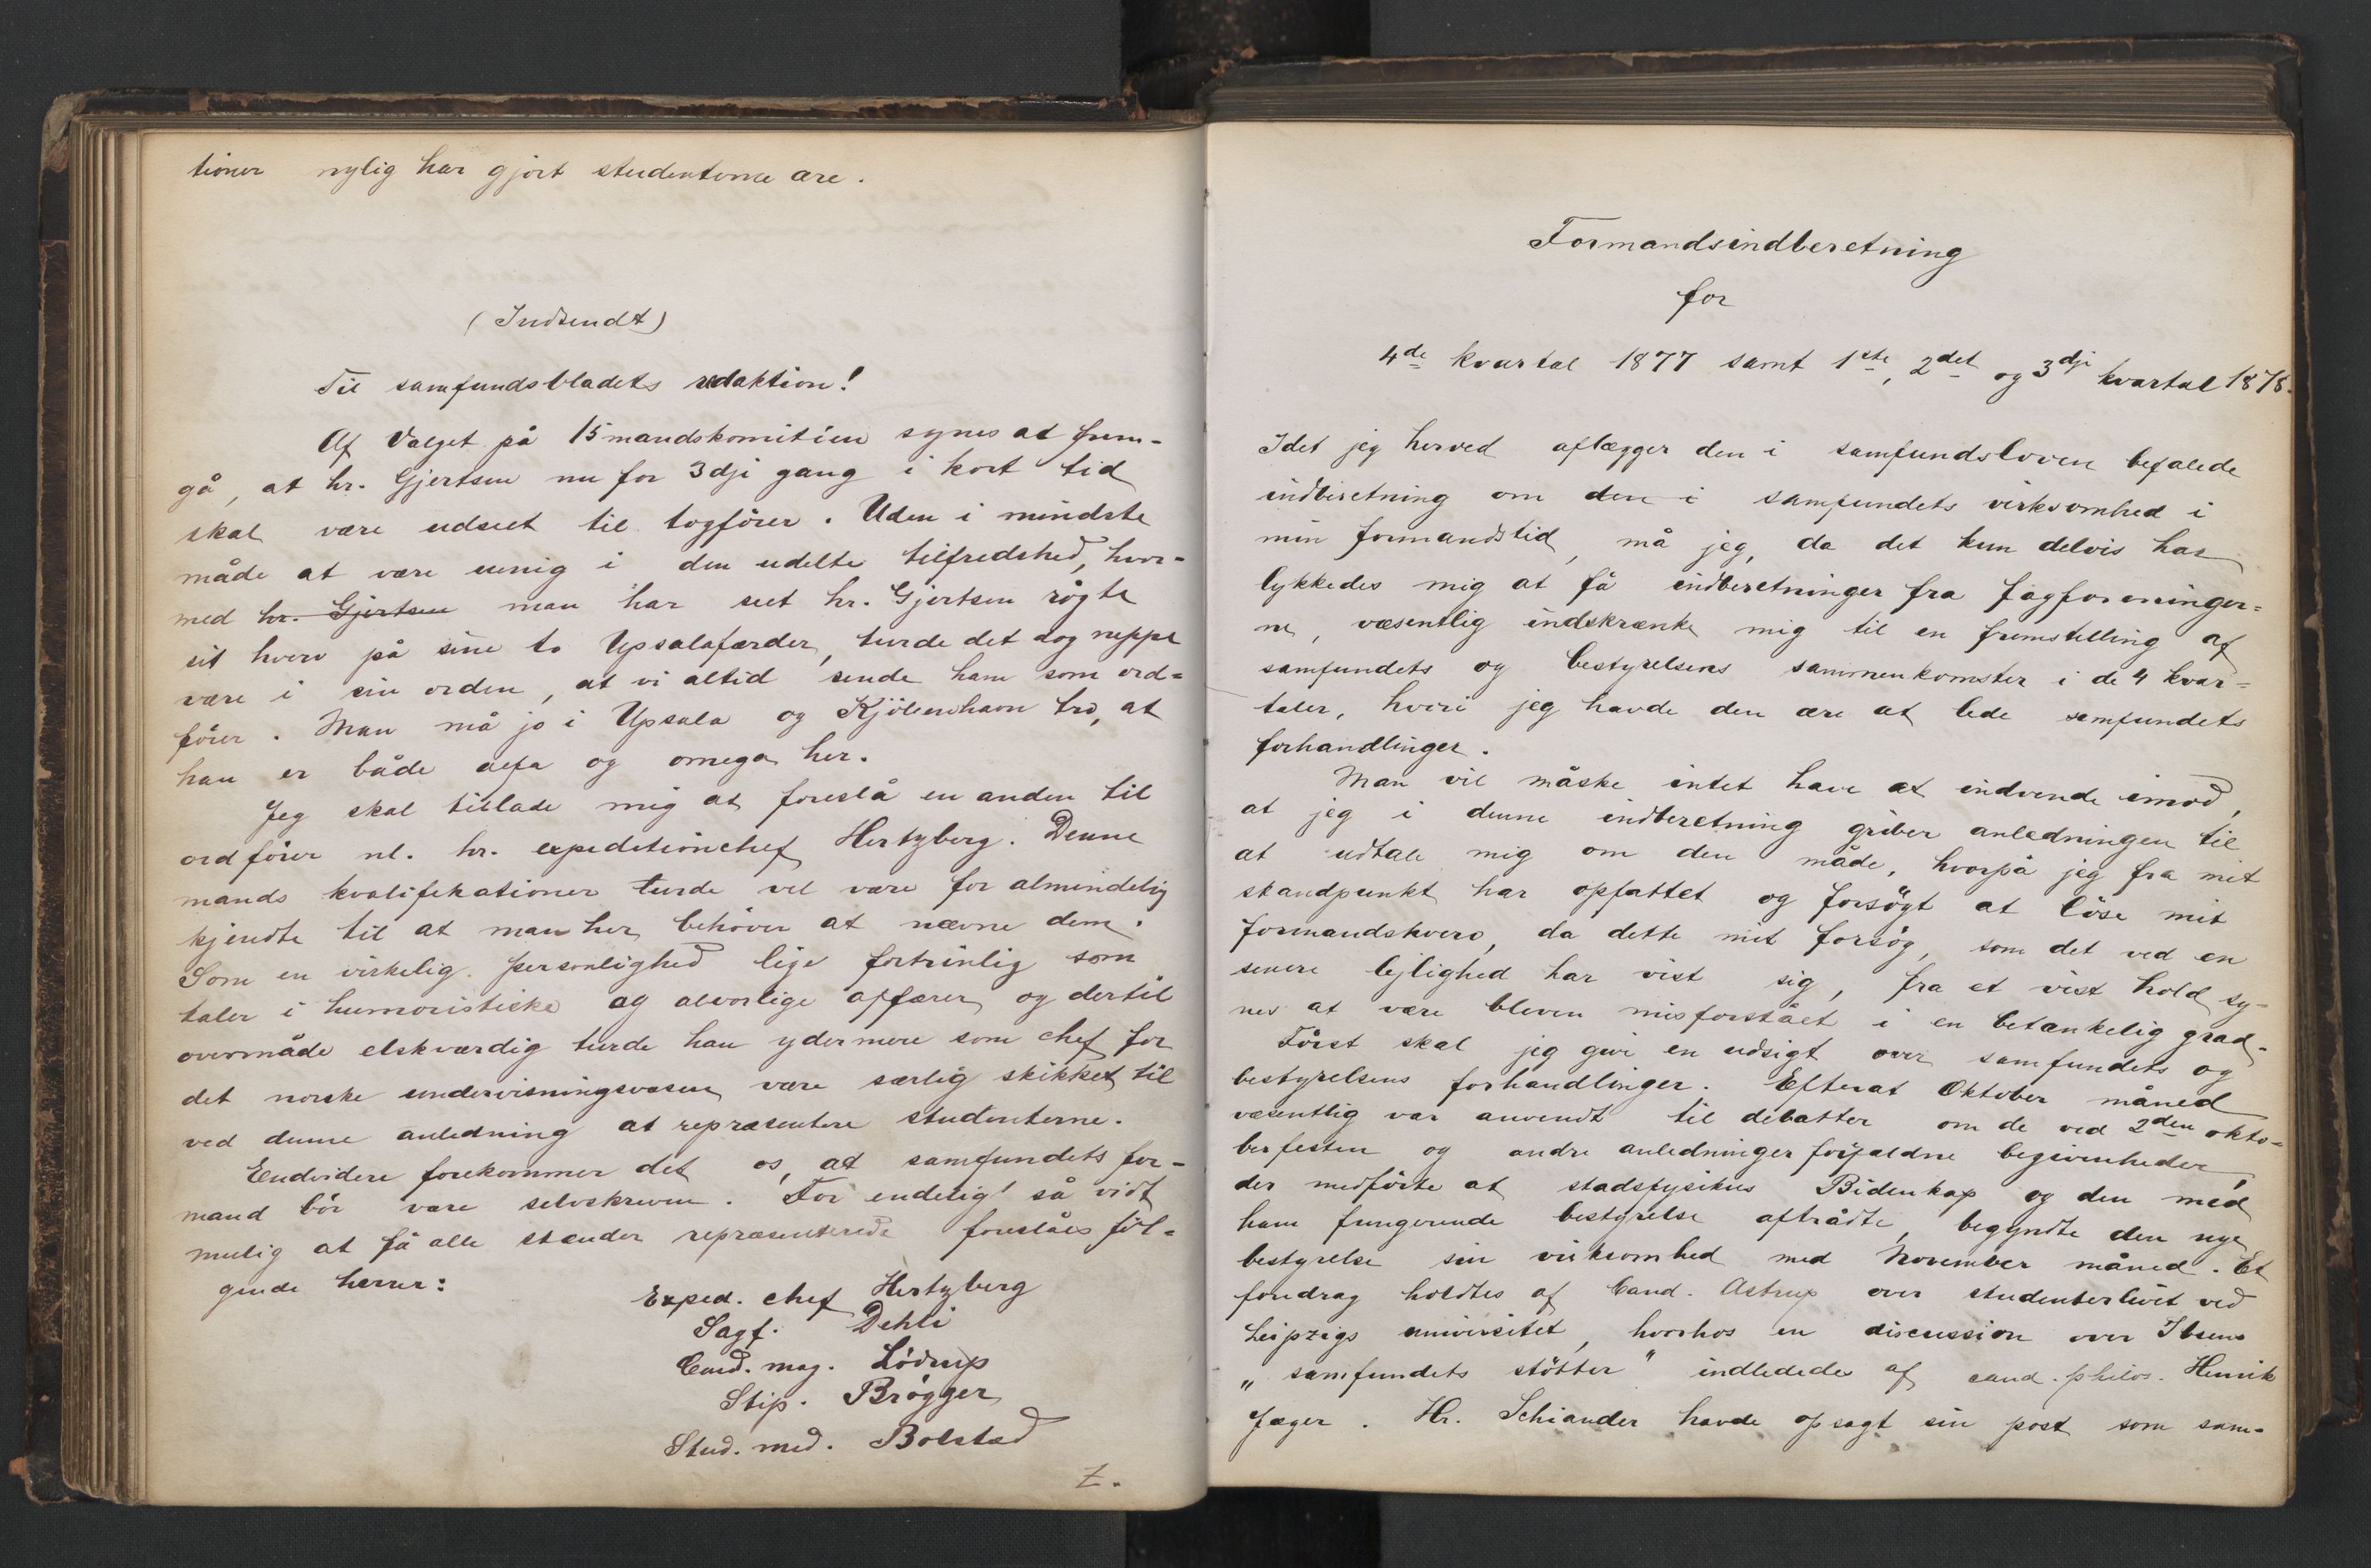 tioner nylig har gjort studenterne ære.
(Indsendt)
Til samfundsbladets redaktion!
Af Valget på 15mandskomitéen synes at frem-
gå, at hr. Gjertsen nu for 3dje gang i kort tid
skal være udseet til togfører. Uden i mindste
måde at være uenig i den udelte tilfredshed, hvor-
med hr. Gjertsen man har seet hr. Gjertsen røgte
sit hverv på sine to Upsalafærder, turde det dog neppe
være i sin orden, at vi altid sende ham som ord-
fører. Man må jo i Upsala og Kjöbenhavn tro, at
han er både alfa og omega her.
Jeg skal tillade mig at foreslå en anden til
ordfører nl. hr. expeditionchef Hertzberg. Denne
mands kvalifikationer turde vel være for almindelig
kjendte til at man her behøver at nævne dem.
Som en virkelig personlighed lige fortrinlig som
taler i humoristiske og alvorlige affærer og dertil
overmåde elskværdig turde han ydermere som chef for
det norske undervisningsvæsen være særlig skikket til
ved denne anledning at repræsentere studenterne.
Endvidere forekommer det os, at samfundets for-
mand bör være selvskreven. For endelig så vidt
mulig at få alle stænder repræsenterede foreslåes föl-
gende herrer:
Exped. chef Hertzberg
Sagf. Dehli
Cand. mag. Lödrup
Stip. Brögger
Stud. med. Bolstad
Z.
Formandsindberetning
for
4de kvartal 1877 samt 1ste, 2det og 3dje kvartal 1878.
Idet jeg herved aflægger den i samfundsloven befalede
indberetning om den i samfundets virksomhed i
min formandstid, må jeg, da det kun delvis har
lykkedes mig at få indberetninger fra fagforeninger-
ne, væsentlig indskrænke mig til en fremstilling af
samfundets og bestyrelsens sammenkomster i de 4 kvar-
taler, hvori jeg havde den ære at lede samfundets
forhandlinger.
Man vil måske intet have at indvende imod,
at jeg i denne indberetning griber anledningen til
at udtale mig om den måde, hvorpå jeg fra mit
standpunkt har opfattet og forsögt at löse mit
formandshverv, da dette mit forsög, som det ved en
senere lejlighed har vist sig, fra et vist hold sy-
nes at være bleven misforstået i en betænkelig grad.
Först skal jeg give en udsigt over samfundets og
bestyrelsens forhandlinger. Efterat Oktober måned
væsentlig var anvendt til debatter om de ved 2den okto-
berfesten og andre anledninger forfaldne begivenheder,
der medförte at stadsfysikus Bidenkap og den med
ham fungerende bestyrelse aftrådte, begyndte den nye
bestyrelse sin virksomhed med November måned. Et
foredrag holdtes af Cand. Astrup over studenterlivet ved
Leipzigs universitet, hvorhos en discussion over Ibsens
„samfundets stötter" indlededes af cand. philos. Henrik
Jæger. Hr. Schiander havde opsagt sin post som sam-